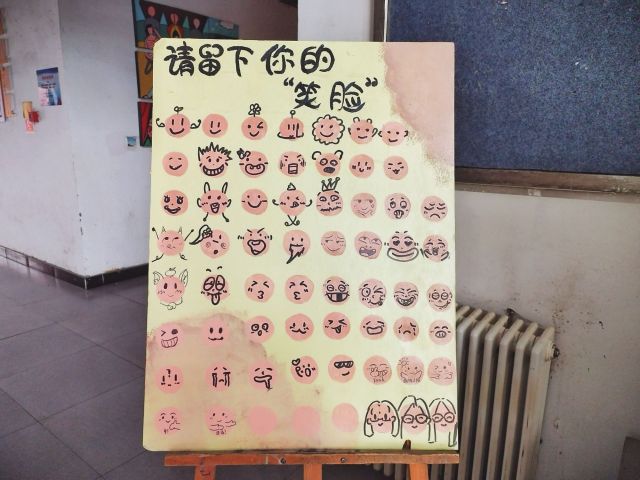 请留下你的
“笑脸”